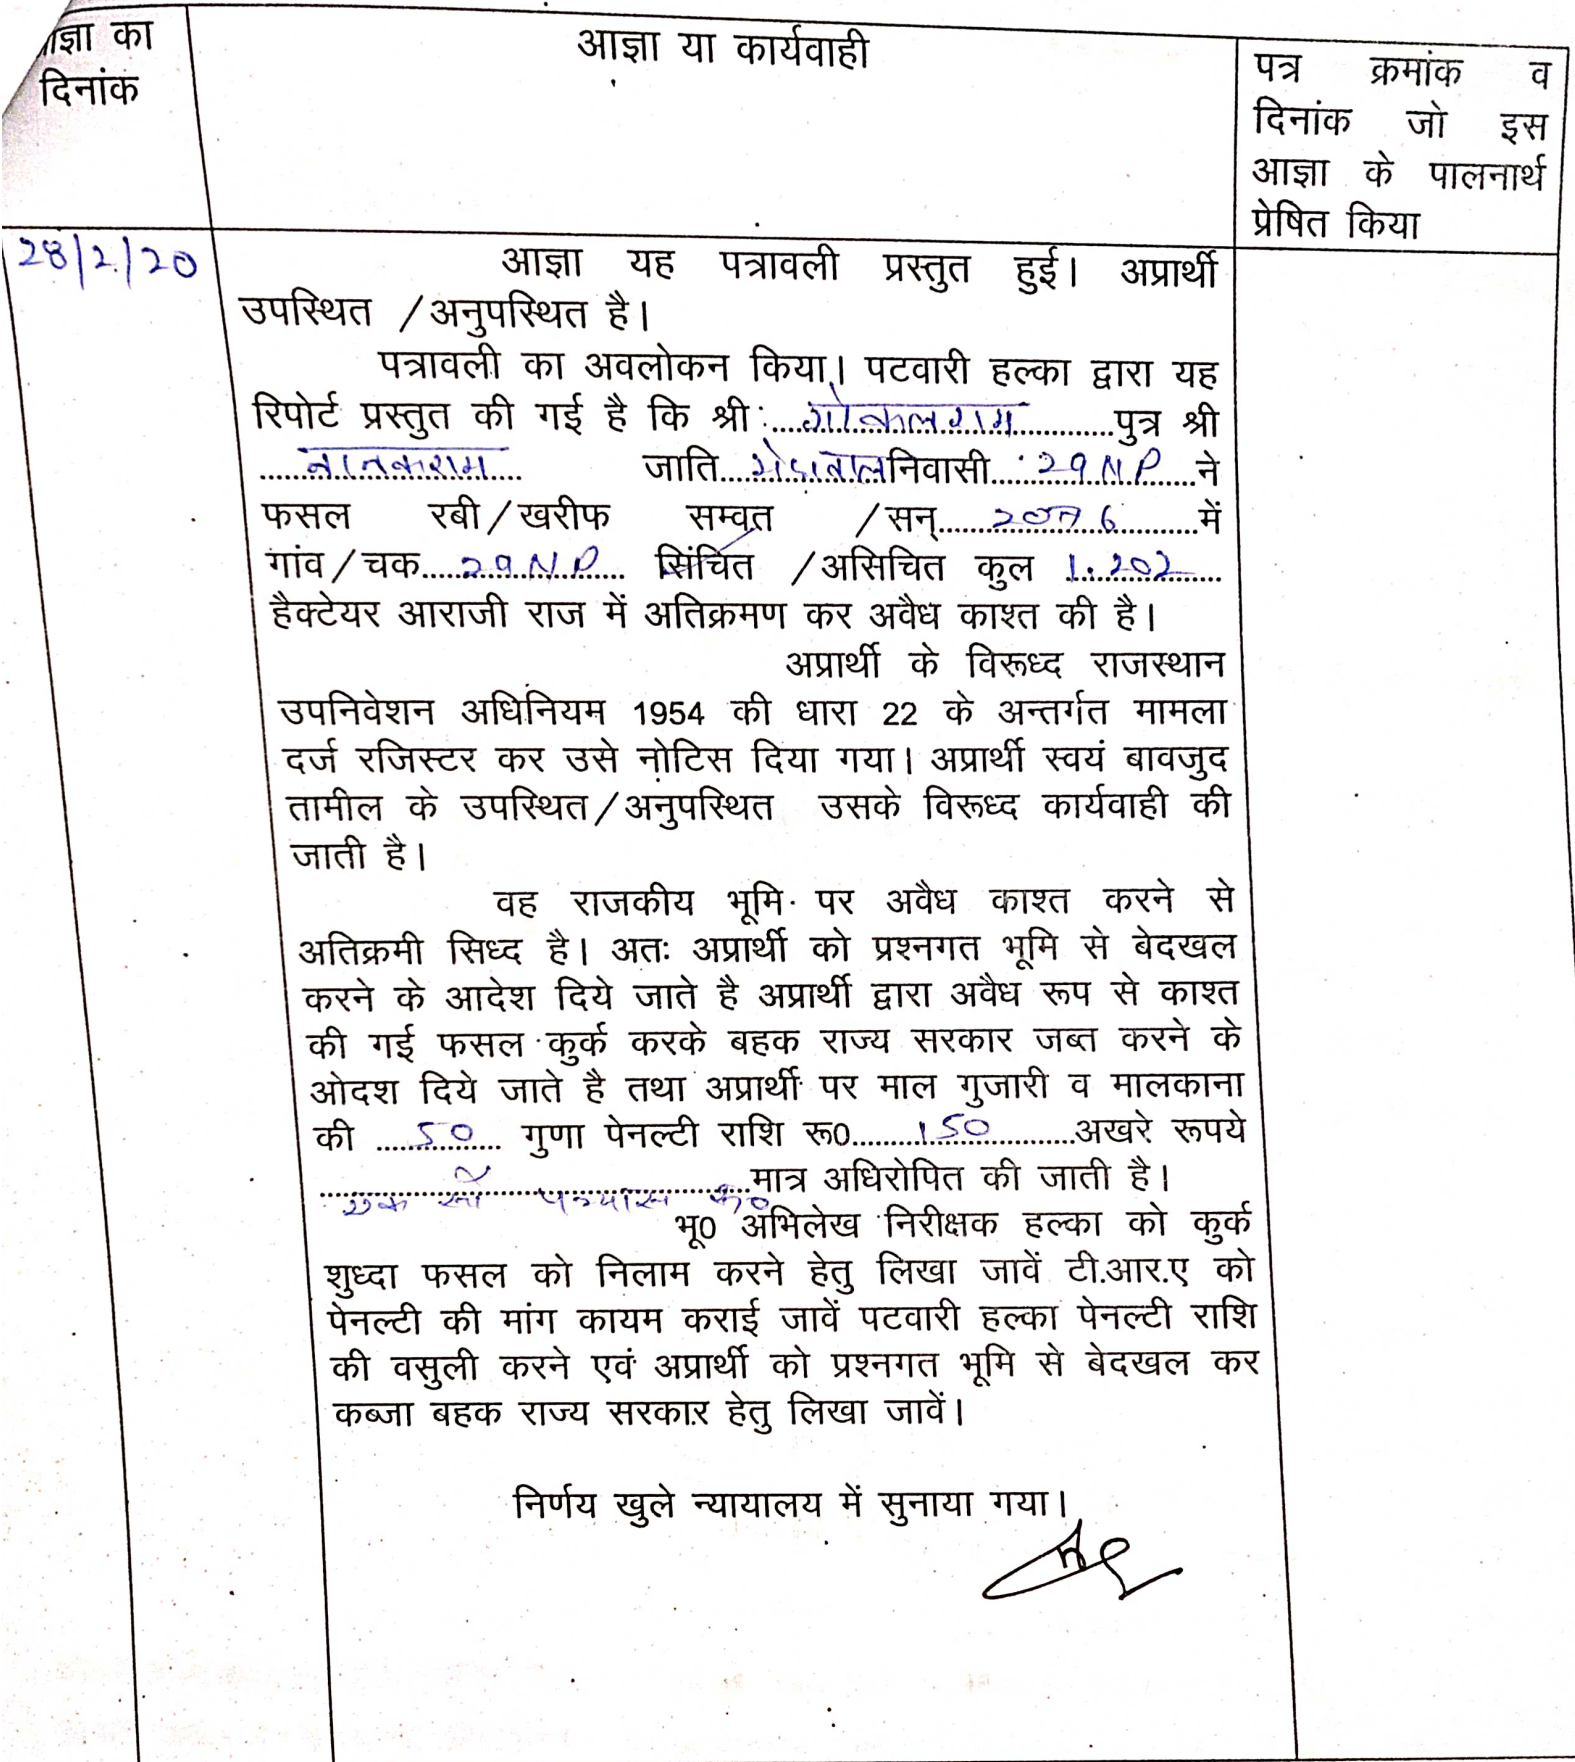 ाज्ञा का
दिनांक
आज्ञा या कार्यवाही
पत्र क्रमांक व
दिनांक जो इस
आज्ञा के पालनार्थ
प्रेषित किया
28/2/20
आज्ञा यह पत्रावली प्रस्तुत हुई। अप्रार्थी
उपस्थित /अनुपस्थित है।
पत्रावली का अवलोकन किया। पटवारी हल्का द्वारा यह
रिपोर्ट प्रस्तुत की गई है कि श्री गोकलराम पुत्र श्री
नानकराम जाति निवासी 29 NP ने
फसल रबी/खरीफ सम्वत /सन् 2076 में
गांव/चक 29 NP सिंचित /असिचित कुल 1.202
हैक्टेयर आराजी राज में अतिक्रमण कर अवैध काश्त की है।
अप्रार्थी के विरूध्द राजस्थान
उपनिवेशन अधिनियम 1954 की धारा 22 के अन्तर्गत मामला
दर्ज रजिस्टर कर उसे नोटिस दिया गया। अप्रार्थी स्वयं बावजुद
तामील के उपस्थित/अनुपस्थित उसके विरूध्द कार्यवाही की
जाती है।
वह राजकीय भूमि पर अवैध काश्त करने से
अतिक्रमी सिध्द है। अतः अप्रार्थी को प्रश्नगत भूमि से बेदखल
करने के आदेश दिये जाते है अप्रार्थी द्वारा अवैध रूप से काश्त
की गई फसल कुर्क करके बहक राज्य सरकार जब्त करने के
ओदश दिये जाते है तथा अप्रार्थी पर माल गुजारी व मालकाना
की 50 गुणा पेनल्टी राशि रू0 150 अखरे रूपये
एक सौ पच्चास रू0 मात्र अधिरोपित की जाती है।
भू0 अभिलेख निरीक्षक हल्का को कुर्क
शुध्दा फसल को निलाम करने हेतु लिखा जावें टी.आर.ए को
पेनल्टी की मांग कायम कराई जावें पटवारी हल्का पेनल्टी राशि
की वसुली करने एवं अप्रार्थी को प्रश्नगत भूमि से बेदखल कर
कब्जा बहक राज्य सरकार हेतु लिखा जावें।
निर्णय खुले न्यायालय में सुनाया गया।